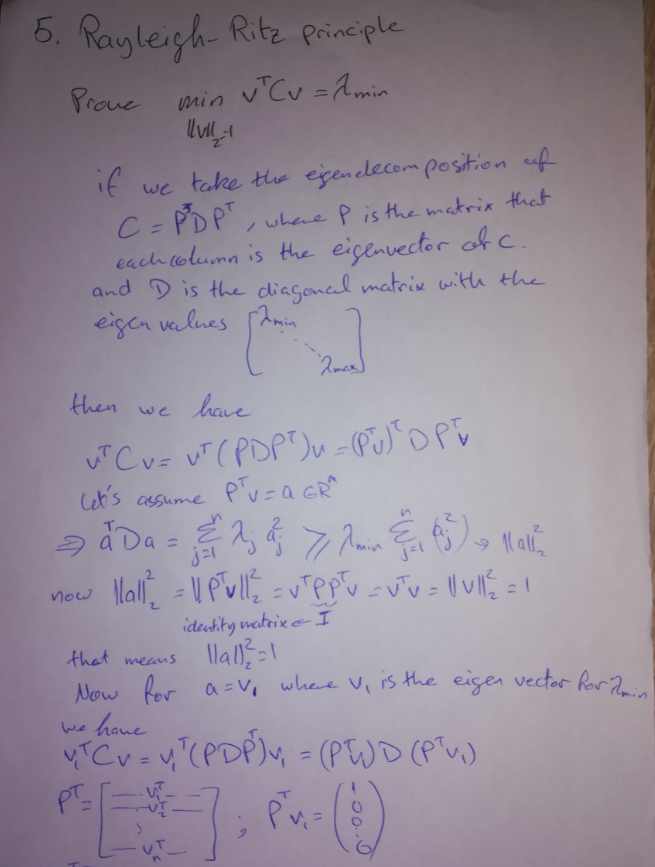 5. Rayleigh-Ritz principle
Prove min vᵀCv = λmin
||v||₂=1
if we take the eigendecomposition of
C = PDPᵀ, where P is the matrix that
each column is the eigenvector of C.
and D is the diagonal matrix with the
eigen values [λmin ⋱ λmax]
then we have
vᵀCv = vᵀ(PDPᵀ)v = (Pᵀv)ᵀDPᵀv
Let's assume Pᵀv = a ∈ Rⁿ
⇒ aᵀDa = Σⁿⱼ₌₁ λⱼ aⱼ² ⩾ λmin Σⁿⱼ₌₁ (aⱼ²) → ||a||₂²
now ||a||₂² = ||Pᵀv||₂² = vᵀPPᵀv = vᵀv = ||v||₂² = 1
identity matrix ← I
that means ||a||₂² = 1
Now for a = v₁ where v₁ is the eigen vector for λmin
we have
v₁ᵀCv = v₁ᵀ(PDPᵀ)v₁ = (Pᵀv₁)D(Pᵀv₁)
Pᵀ = [—v₁ᵀ— —v₂ᵀ— ⋮ —vₙᵀ—] ; Pᵀv₁ = (1 0 0 ⋮ 0)